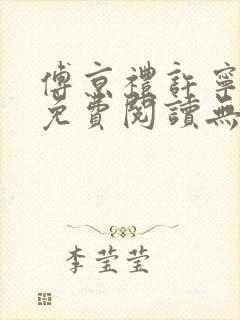 傅京禮許寧
免費閱讀無
李莹莹